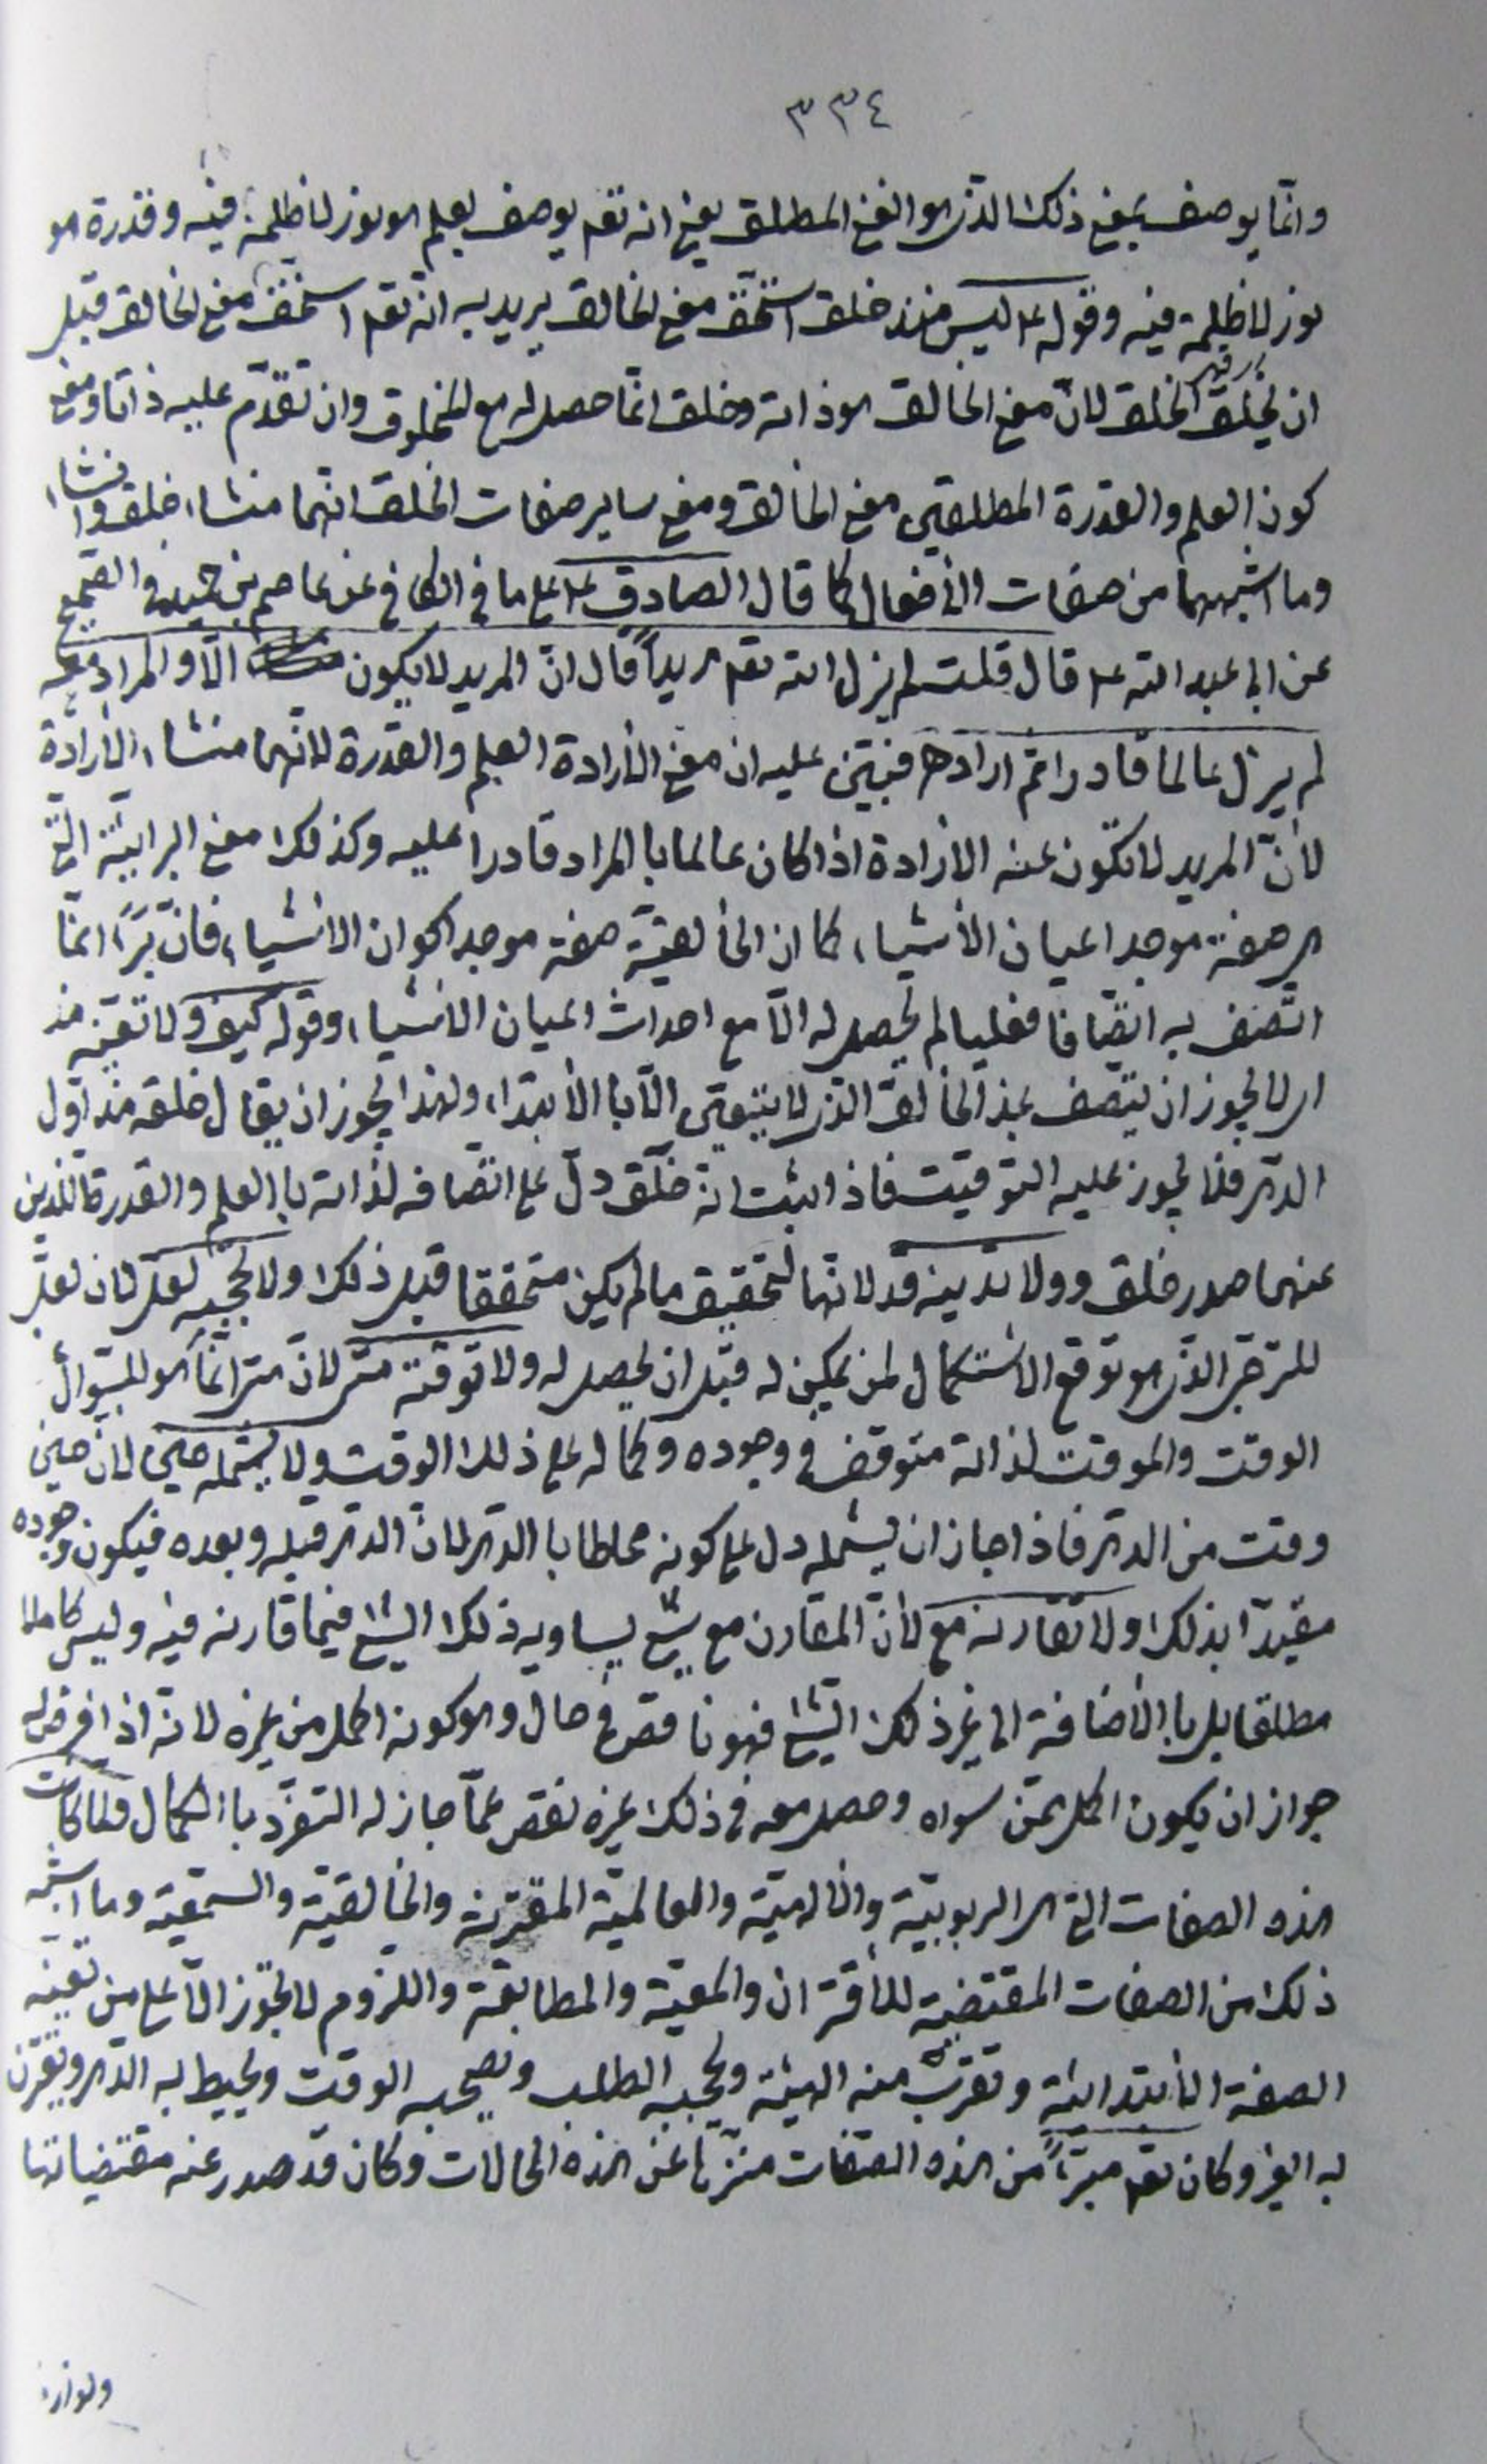 ٣٣٤
وانّما يوصف بمعنى ذلك الذى هو الغنى المطلق يعنى انه تعم يوصف بعلم هو نور لا ظلمة فيه وقدرة هو
نور لا ظلمة فيه وقوله ع ليس منذ خلق استحقّ معنى الخالق يريد به انّه تعم استحقّ معنى الخالق قبل
ان يخلق الخلق لانّ معنى الخالق هو ذاته وخلق انّما حصل له مع المخلوق وان تقدّم عليه ذاتا ومعنى
كون العلم والقدرة المطلقين معنى الخالق ومعنى ساير صفات الخلق انّهما منشاء خلق وانشاء
وما اشبههما من صفات الأفعال كما قال الصادق ع على ما في الكافي عن عاصم بن حميد في الصحيح
عن ابى عبد الله ع قال قلت لم يزل الله تعم مريداً قال انّ المريد لا يكون الّا والمراد معه
لم يزل عالما قادرا ثم اراد فنبّئنى عليه ان معنى الأرادة العلم والقدرة لانّهما منشاء الأرادة
لأنّ المريد لا تكون عنه الارادة اذا كان عالما با المراد قادرا عليه وكذلك معنى البرايئة التى
هى صفة موجد اعيان الأشياء كما ان الخالقيّة صفة موجد اكوان الاشياء فانّ بَرَءَ انّما
اتّصف به اتّصافا فعليا لم يحصل له الّا مع احداث اعيان الاشياء وقوله كيف ولا تغيّبه مذ
اى لا يجوز ان يتّصف بمذ الخالق الذى لا يتبعّى الّا با الأبتداء ولهذا يجوز ان يقال خلقه مذ اول
الدّهر فلا يجوز عليه التوقيت فاذا ثبت انّه خلق دلّ على اتّصافه لذاته با العلم والقدرة اللّذين
عنهما صدر خلق وولا تدنيه قد لانّها لتحقيق ما لم يكن متحققا قبل ذلك ولا تحجبه لعلّ لان لعلّ
للترجّى الذى هو توقع الاستكمال لمن يمكن له قبل ان يحصل له ولا توقّته متى لانّ متى انّما هو للسّوال
الوقت والموقت لذاته متوقف في وجوده وكماله على ذلك الوقت ولا يشمله حين لانّ حين
وقت من الدهر فاذا جاز ان يشمله دل على كونه محاطا با الدهر لانّ الدهر قبله وبعده فيكون وجوده
مقيّدا بذلك ولا تقارنه مع لأنّ المقارن مع شئ يساويه ذلك الشئ فيما قارنه فيه وليس كاملا
مطلقا بل با الأضافة الى غير ذلك الشئ فهو ناقص في حال وهو كونه اكمل من غيره لانه اذا فرض له
جواز ان يكون اكمل ممّن سواه وحصل معه في ذلك غيره نقص عمّا جاز له التفرّد با الكمال فلمّا كانت
هذه الصفات التى هى الربوبيّة والالهيّة والعالميّة المقترنة والخالقيّة والسمعيّة وما اشبه
ذلك من الصفات المقتضية للأقتران والمعيّة والمطابقة واللزوم لا تجوز الّا على من تغيّبه
الصفة الأبتدائية وتقرب منه الهيئة ويحجبه الطلب ويصحبه الوقت ويحيط به الدّهر ويقترن
به الغير وكان تعم مبرّءاً من هذه الصّفات منزّها عن هذه الحالات وكان قد صدر عنه مقتضياتها
ولوازم